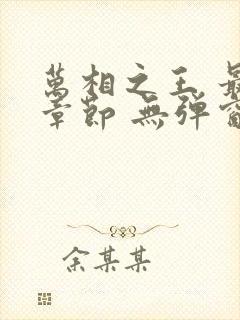 萬相之王 最
章節 無弹窗
余某某